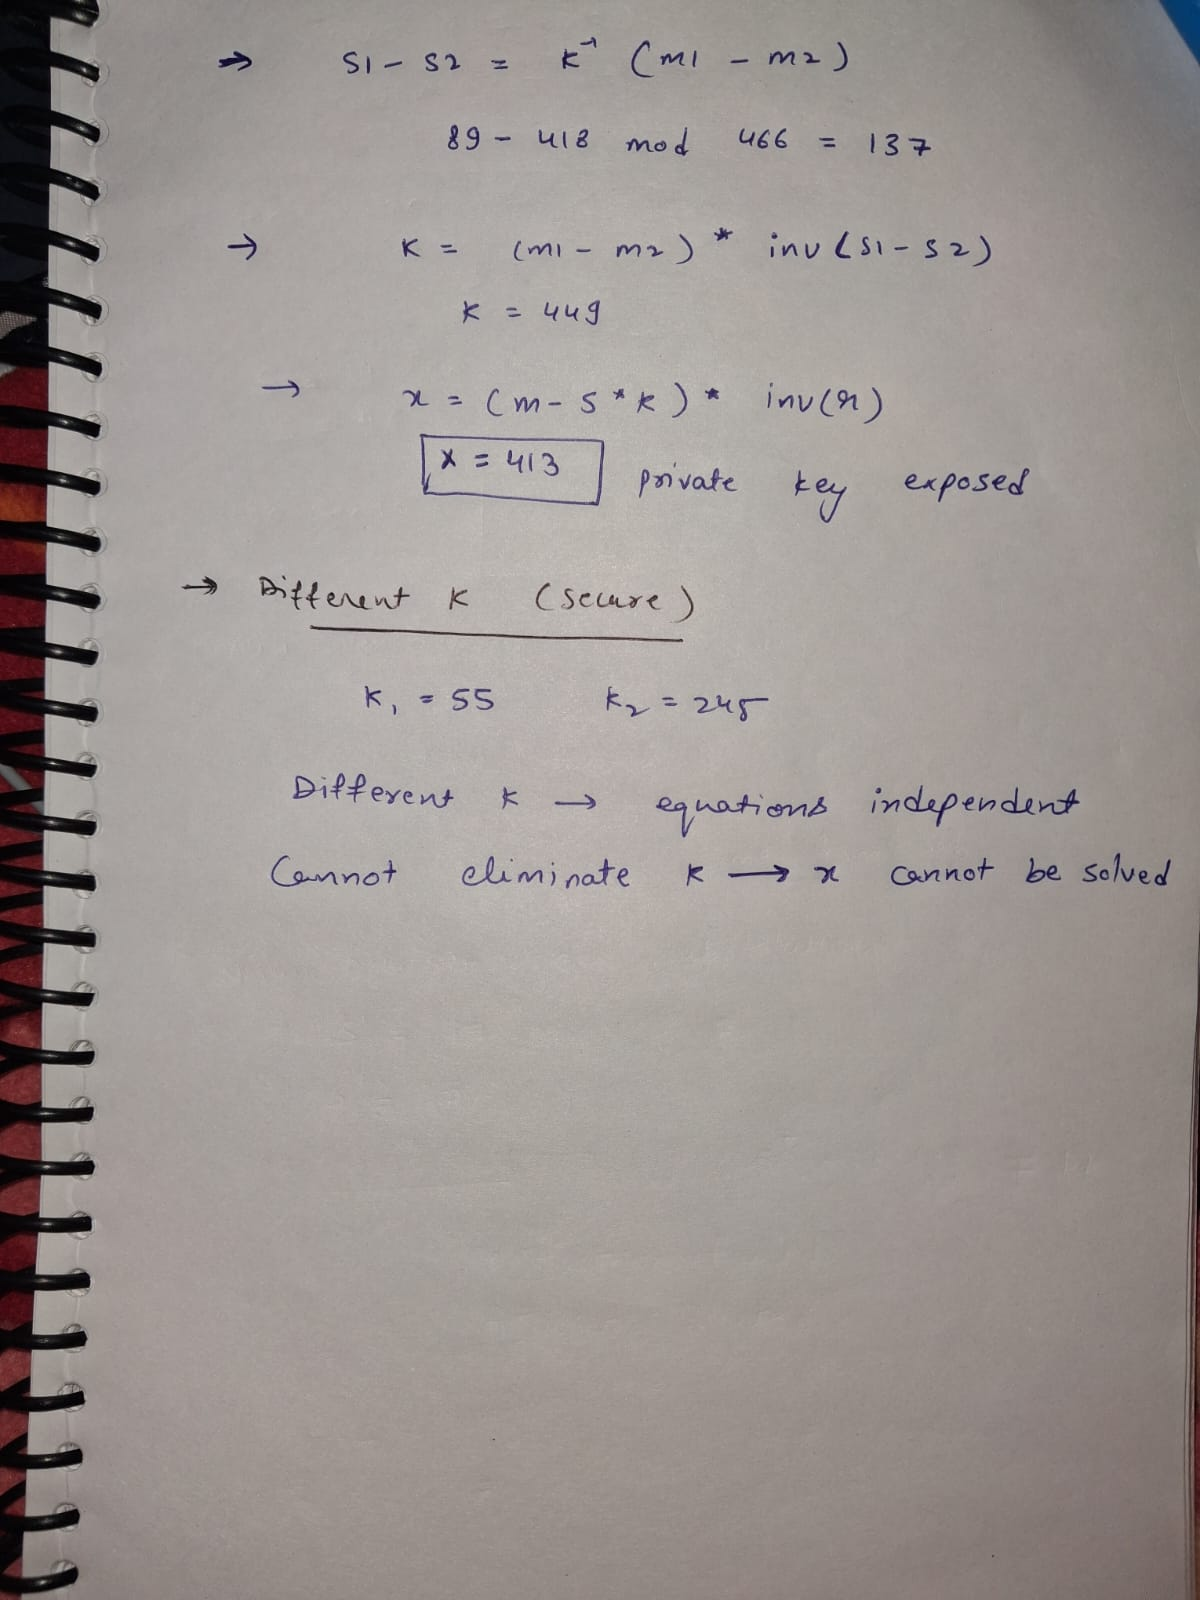 → S1 - S2 = K⁻¹ (m1 - m2)
89 - 418 mod 466 = 137
→ K = (m1 - m2) * inv(S1 - S2)
K = 449
→ x = (m - S * k) * inv(r)
x = 413 private key exposed
→ Different K (secure)
K₁ = 55 K₂ = 245
Different K → equations independent
Cannot eliminate K → x cannot be solved